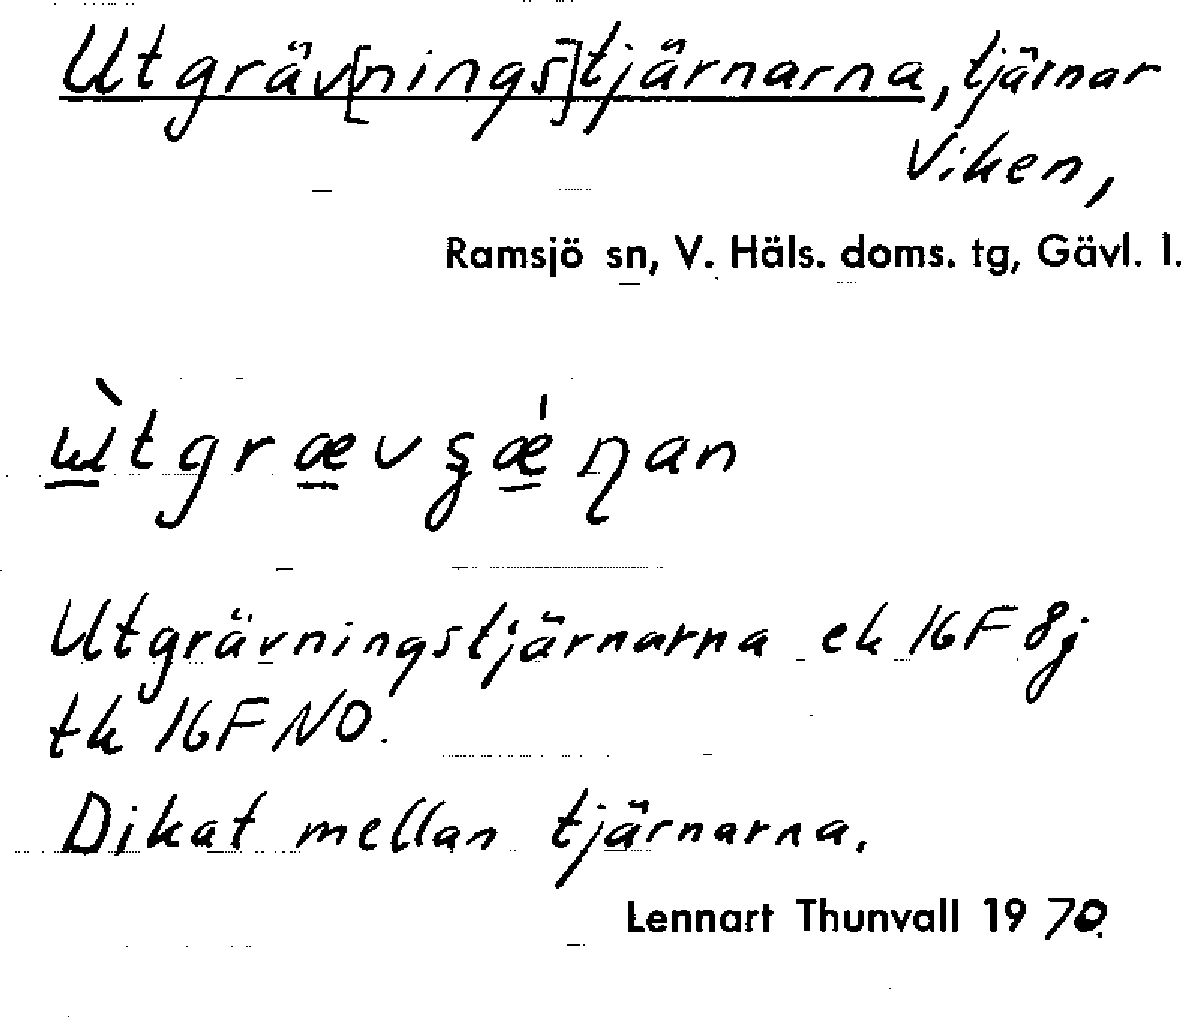 Utgräv[nings]tjärnarna, tjärnar
Viken,
Ramsjö sn, V. Häls. doms. tg, Gävl. l.
ɯ̲̀tgræ̲vʂǽ̲ɳan
Utgrävningstjärnarna ek 16F 8j
tk 16F NO.
Dikat mellan tjärnarna.
Lennart Thunvall 1970.